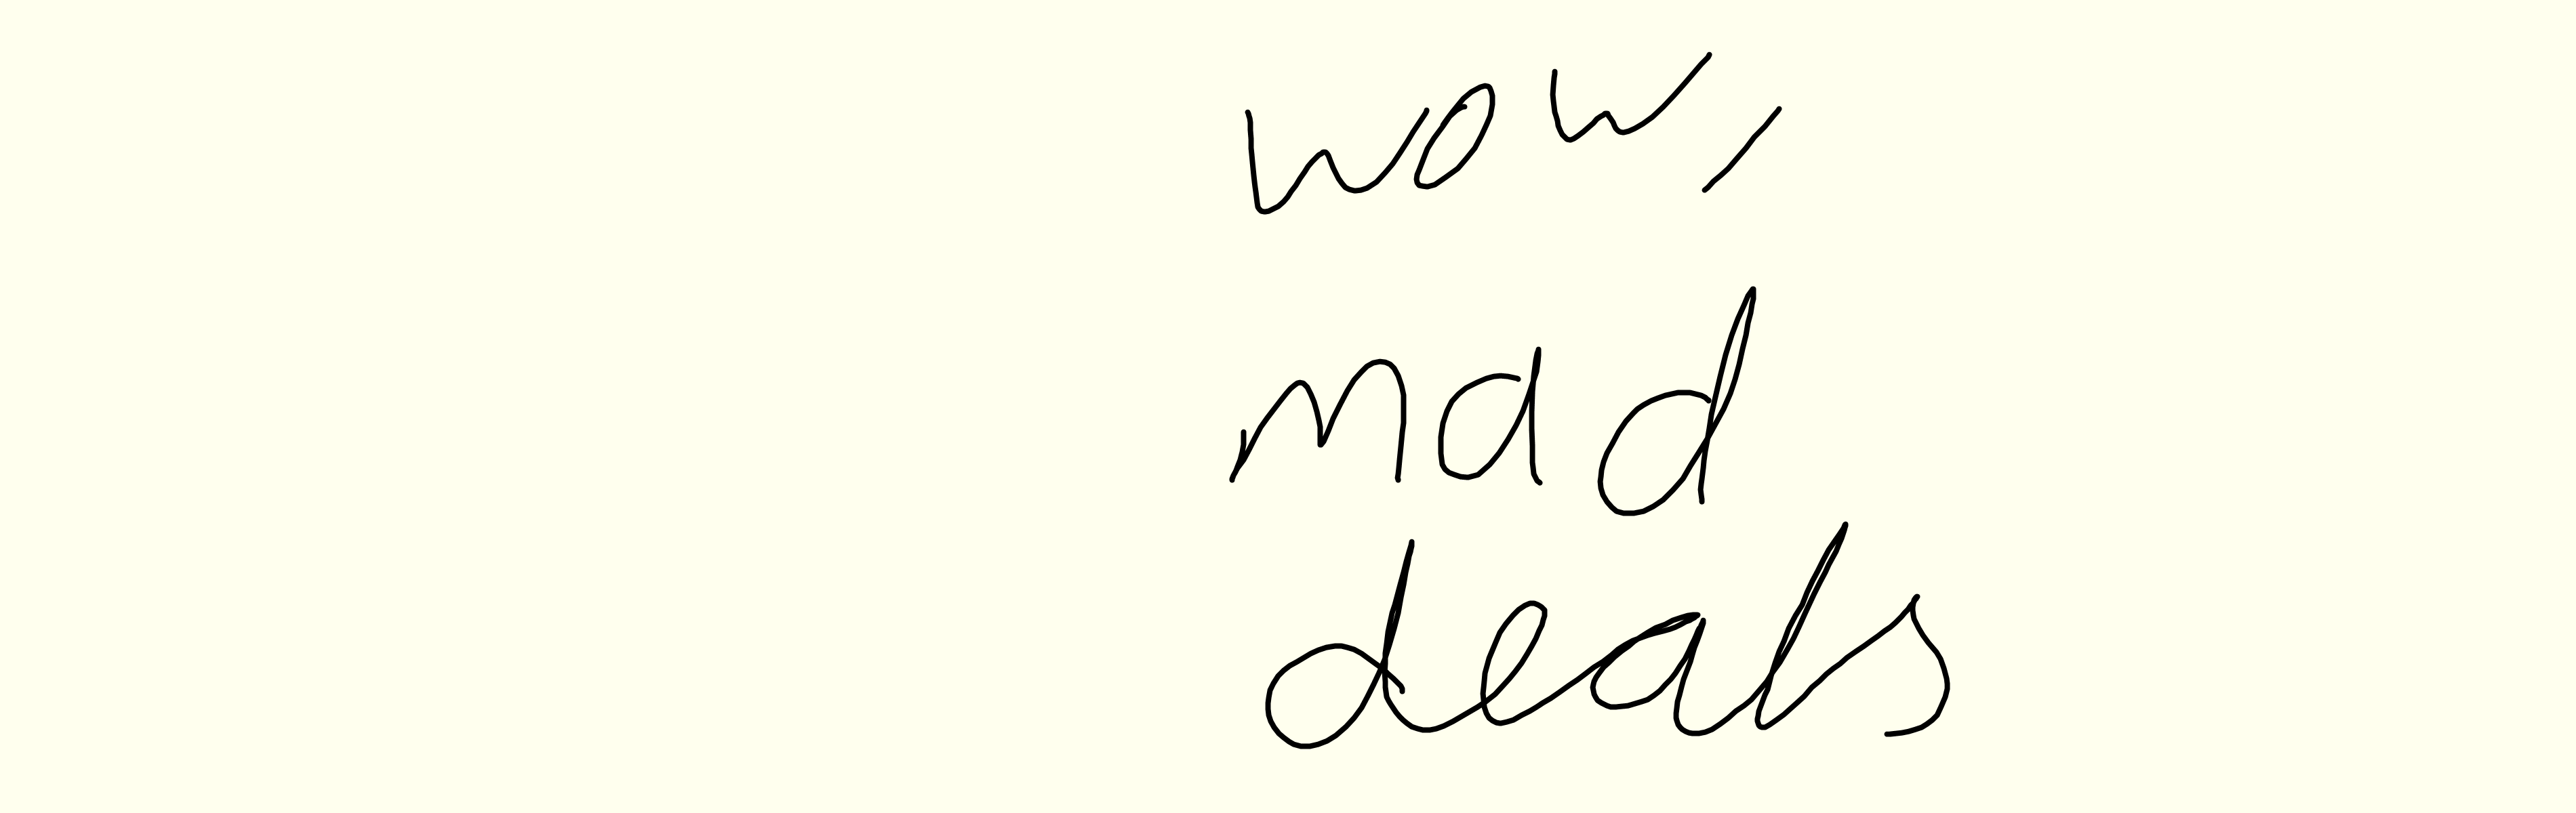 wow,
mad
deals